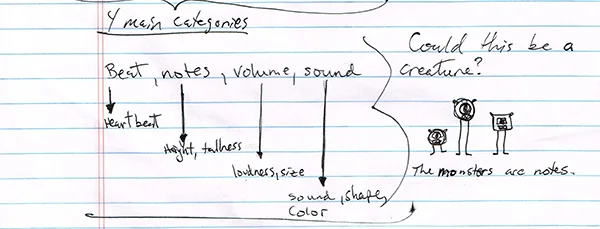 4 main categories
Beat, notes, volume, sound
Heartbeat
Height, tallness
loudness, size
sound, shape,
Color
Could this be a
creature?
The monsters are notes.